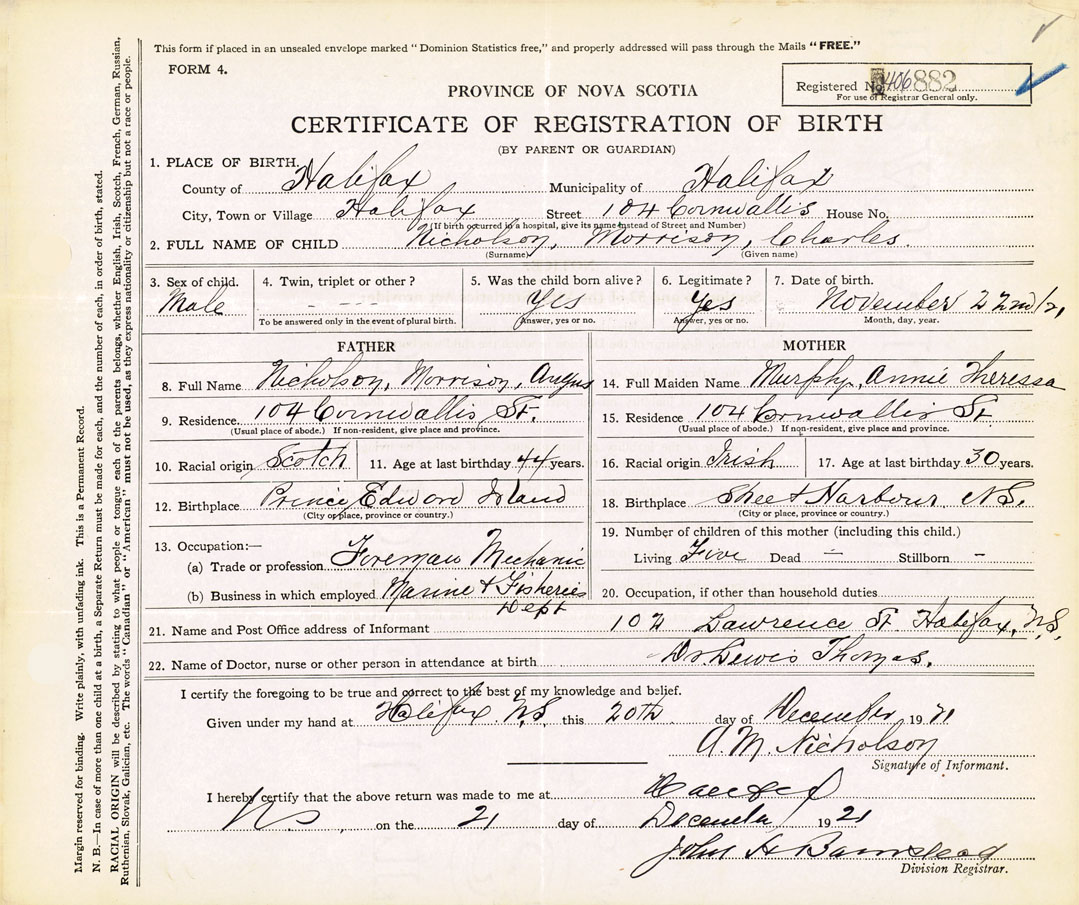 This form if placed in an unsealed envelope marked "Dominion Statistics free," and properly addressed will pass through the Mails "FREE."
FORM 4.
Registered No. 406882
For use of Registrar General only.
PROVINCE OF NOVA SCOTIA
CERTIFICATE OF REGISTRATION OF BIRTH
(BY PARENT OR GUARDIAN)
1. PLACE OF BIRTH.
County of Halifax Municipality of Halifax
City, Town or Village Halifax Street 104 Cornwallis House No.
(If birth occurred in a hospital, give its name instead of Street and Number)
2. FULL NAME OF CHILD Nicholson, Morrison, Charles.
(Surname) (Given name)
3. Sex of child. 4. Twin, triplet or other? 5. Was the child born alive? 6. Legitimate? 7. Date of birth.
Male - - - Yes Yes November 22nd/21
To be answered only in the event of plural birth. Answer, yes or no. Answer, yes or no. Month, day, year.
FATHER
8. Full Name Nicholson, Morrison, Angus
9. Residence 104 Cornwallis St.
(Usual place of abode.) If non-resident, give place and province.
10. Racial origin Scotch 11. Age at last birthday 44 years.
12. Birthplace Prince Edward Island
(City or place, province or country.)
13. Occupation:—
(a) Trade or profession Foreman Mechanic
(b) Business in which employed Marine & Fisheries
Dept
MOTHER
14. Full Maiden Name Murphy, Annie Theressa
15. Residence 104 Cornwallis St.
(Usual place of abode.) If non-resident, give place and province.
16. Racial origin Irish 17. Age at last birthday 30 years.
18. Birthplace Sheet Harbour N.S.
(City or place, province or country.)
19. Number of children of this mother (including this child.)
Living Five Dead — Stillborn -
20. Occupation, if other than household duties
21. Name and Post Office address of Informant 102 Lawrence St Halifax, N.S.
22. Name of Doctor, nurse or other person in attendance at birth Dr. Lewis Thomas.
I certify the foregoing to be true and correct to the best of my knowledge and belief.
Given under my hand at Halifax N.S. this 20th day of December 1921
A. M. Nicholson
Signature of Informant.
I hereby certify that the above return was made to me at Halifax
NS on the 21 day of December 1921
John H Barnstead
Division Registrar.
Margin reserved for binding. Write plainly, with unfading ink. This is a Permanent Record.
N. B.—In case of more than one child at a birth, a Separate Return must be made for each, and the number of each, in order of birth, stated.
RACIAL ORIGIN will be described by stating to what people or tongue each of the parents belongs, whether English, Irish, Scotch, French, German, Russian,
Ruthenian, Slovak, Galician, etc. The words "Canadian" or "American" must not be used, as they express nationality or citizenship but not a race or people.